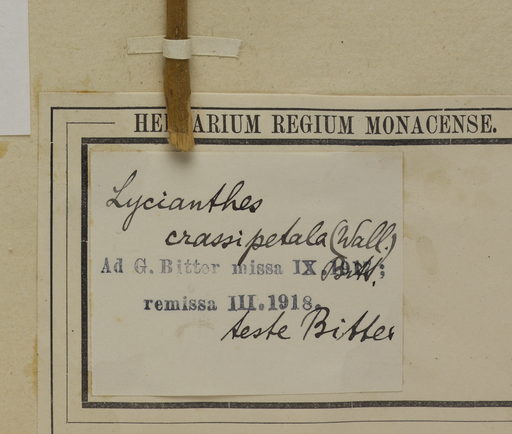 HERBARIUM REGIUM MONACENSE.
Lycianthes
crassipetala (Wall.)
Bitt.
Ad G. Bitter missa IX. 1917;
remissa III. 1918.
teste Bitter